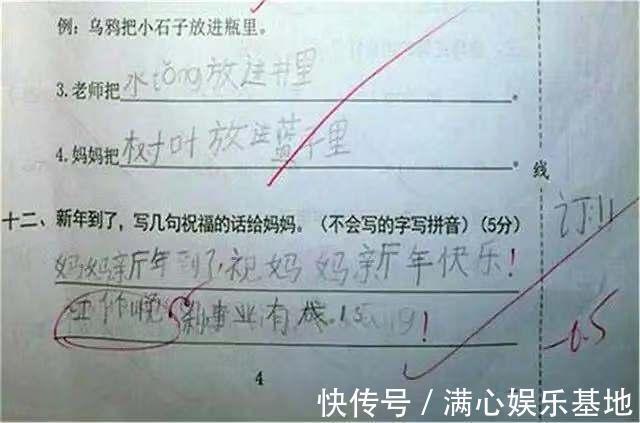 例：乌鸦把小石子放进瓶里。
3.老师把水tǒng放进井里。
4.妈妈把树叶放进蓝子里。
线
十二、新年到了，写几句祝福的话给妈妈。（不会写的字写拼音）(5分)
订
妈妈新年到了,祝妈妈新年快乐！
事业有
！
-0.5
4
快传号/满心娱乐基地